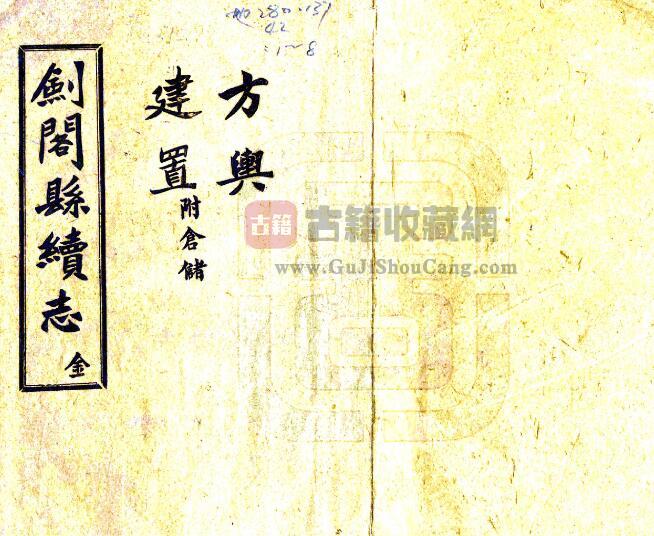 地280·139
42
:1~8
方輿
建置附倉儲
劍閣縣續志 金
古籍 古籍收藏網
www.GuJiShouCang.com